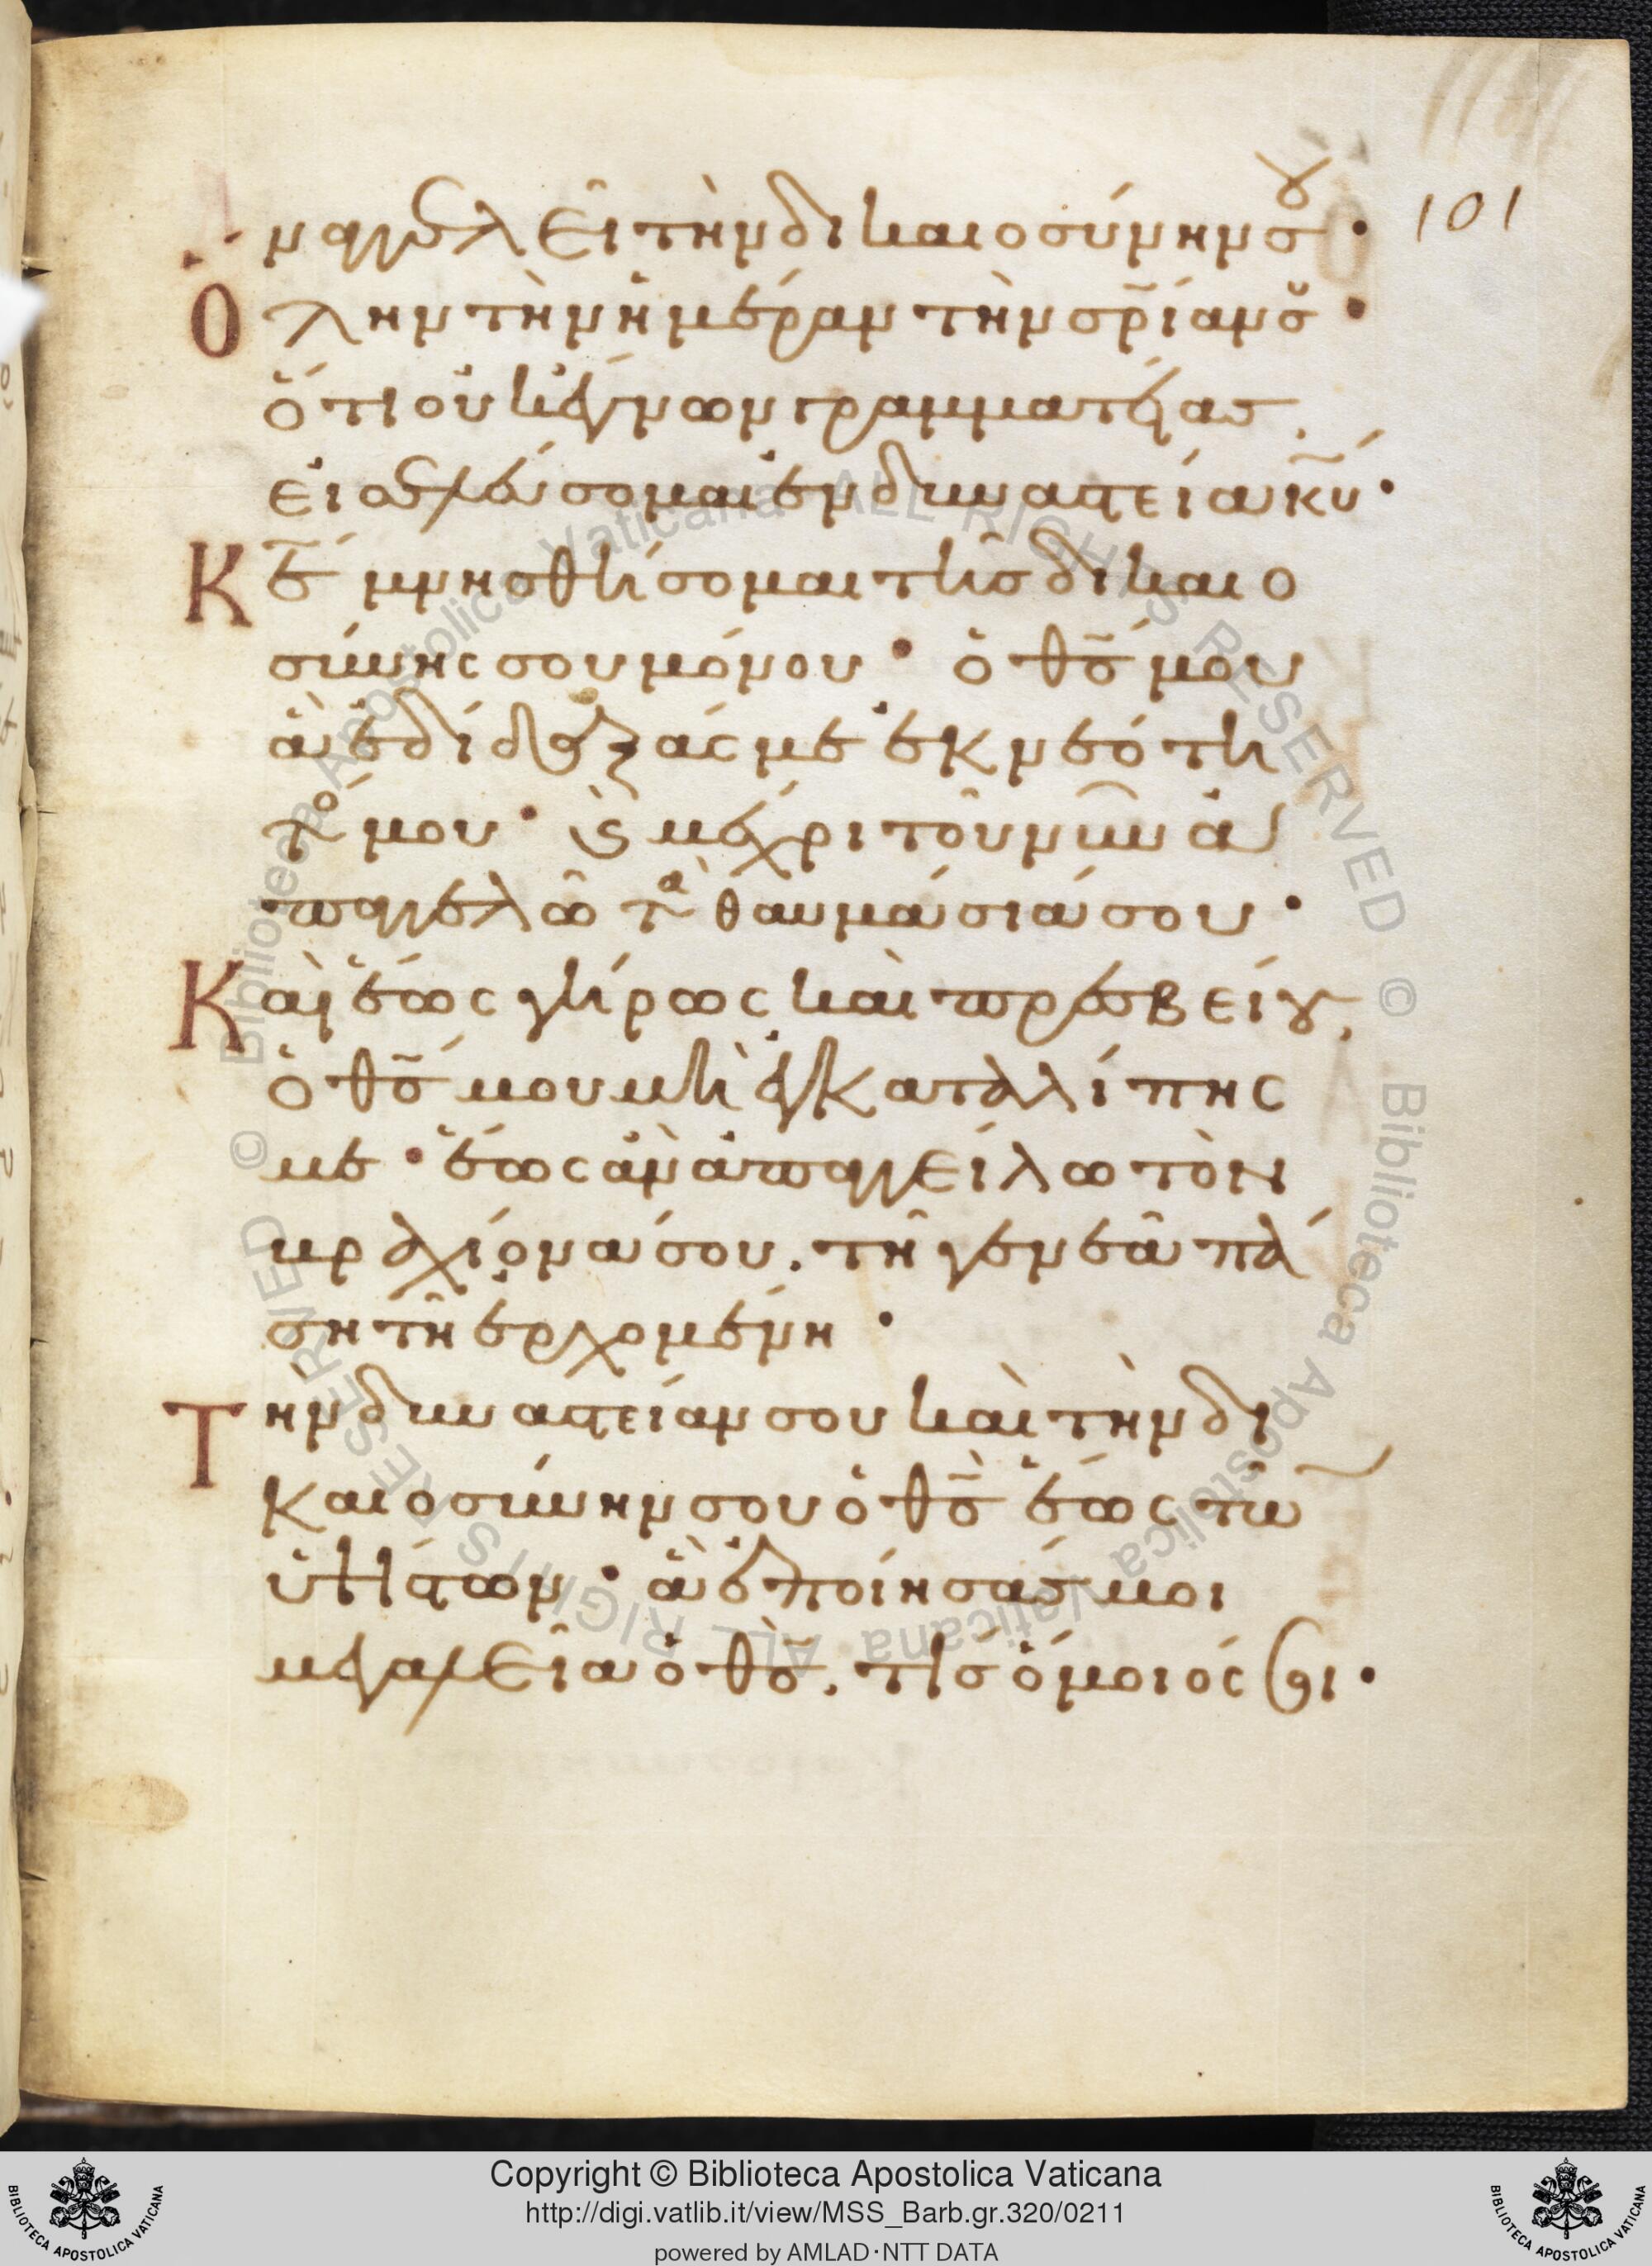 101
ναγγελεῖ τὴν δικαιοσύνην σου·
Ὅλην τὴν ἡμέραν τὴν σρ̅ίαν σου·
ὅτι οὐκ ἔγνων γραμματείας.
εἰσελεύσομαι ἐν δυναστεία κ̅υ·
Κ̅ε μνησθήσομαι τῆς δικαιο
σύνης σου μόνου· ὁ θ̅ς μου
ἃ ἐδίδαξάς με ἐκ νεότη
τό μου· καὶ μέχρι τοῦ νῦν ἀ
παγγελῶ τὰ θαυμάσιά σου·
Καὶ ἕως γήρως καὶ πρεσβείου,
ὁ θ̅ς μου μὴ ἐγκαταλίπης
με· ἕως ἂν ἀπαγγείλω τὸν
βραχίονά σου. τῆ γενεᾶ πά
ση τῆ ἐρχομένη·
Τὴν δυναστείαν σου καὶ τὴν δι
καιοσύνην σου ὁ θ̅ς ἕως τῶ
ὑψίστων· ἃ ἐποίησάς μοι
μεγαλεῖα ὁ θ̅ς. τίς ὅμοιός σοι·
© Biblioteca Apostolica Vaticana ALL RIGHTS RESERVED © Biblioteca Apostolica Vaticana ALL RIGHTS RESERVED
Copyright © Biblioteca Apostolica Vaticana
http://digi.vatlib.it/view/MSS_Barb.gr.320/0211
powered by AMLAD·NTT DATA
BIBLIOTECA APOSTOLICA VATICANA
BIBLIOTECA APOSTOLICA VATICANA